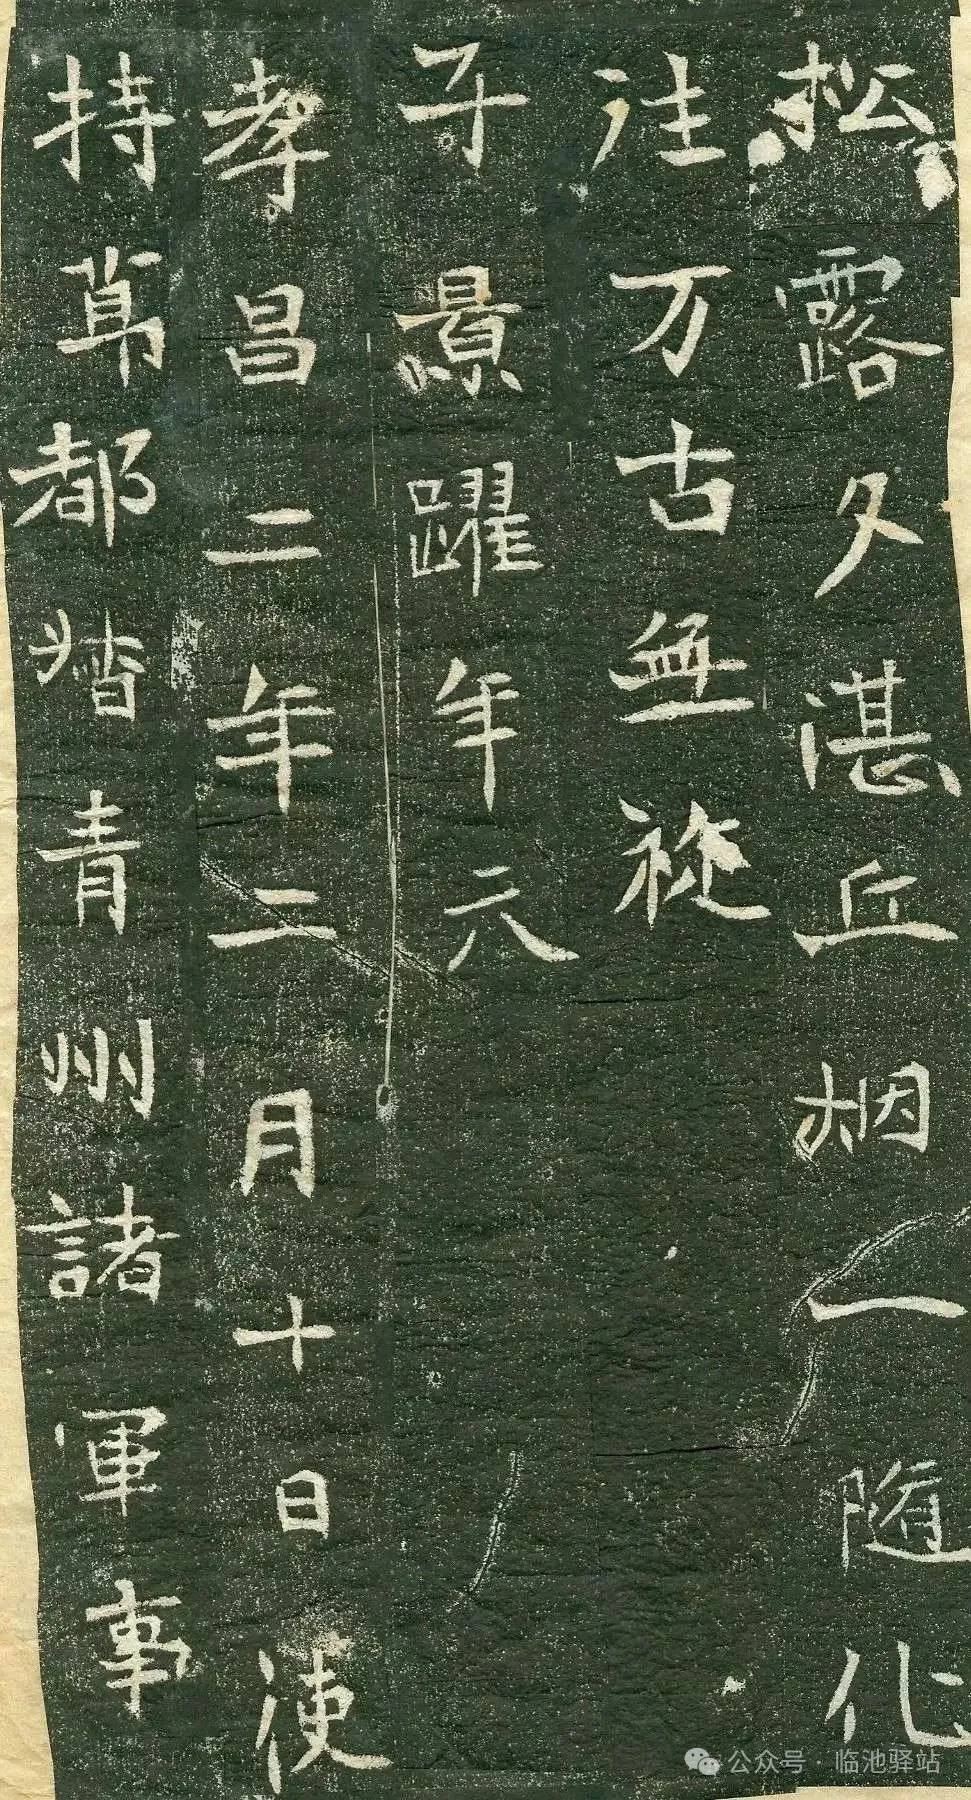 松露夕湛丘烟一随化
往万古無從
子景躍年六
孝昌二年二月十日使
持節都督青州諸軍事
公众号 · 临池驿站